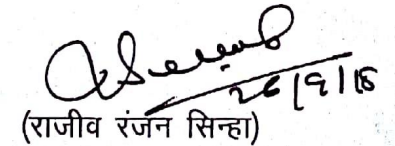 26/9/18
(राजीव रंजन सिन्हा)